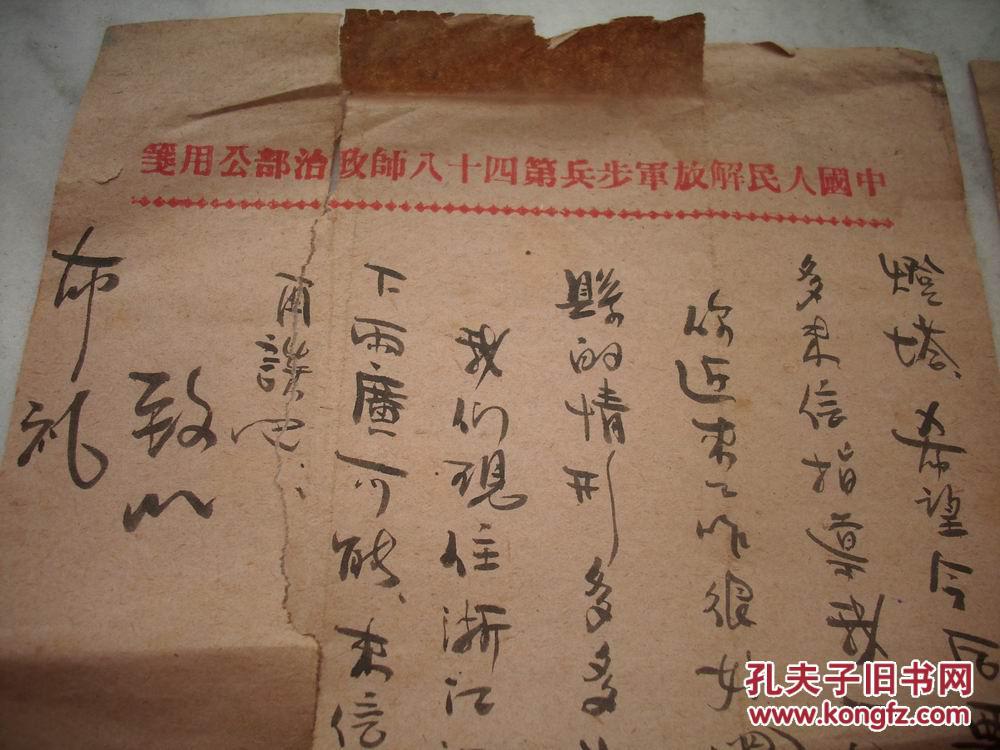 中國人民解放軍步兵第四十八師政治部公用箋
燈塔、希望今后
多来信指導我
你近来工作很好
縣的情形多多
我们現住浙江
下两廣可能、来信
再談吧、
致以
布礼
孔夫子旧书网
www.kongfz.com